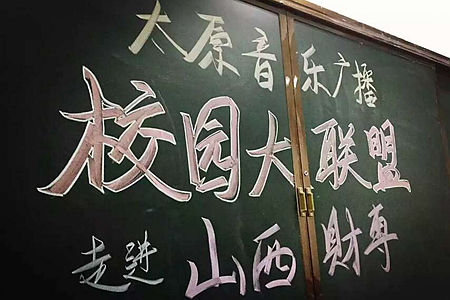 太原音乐广播
校园大联盟
走进 山西財专